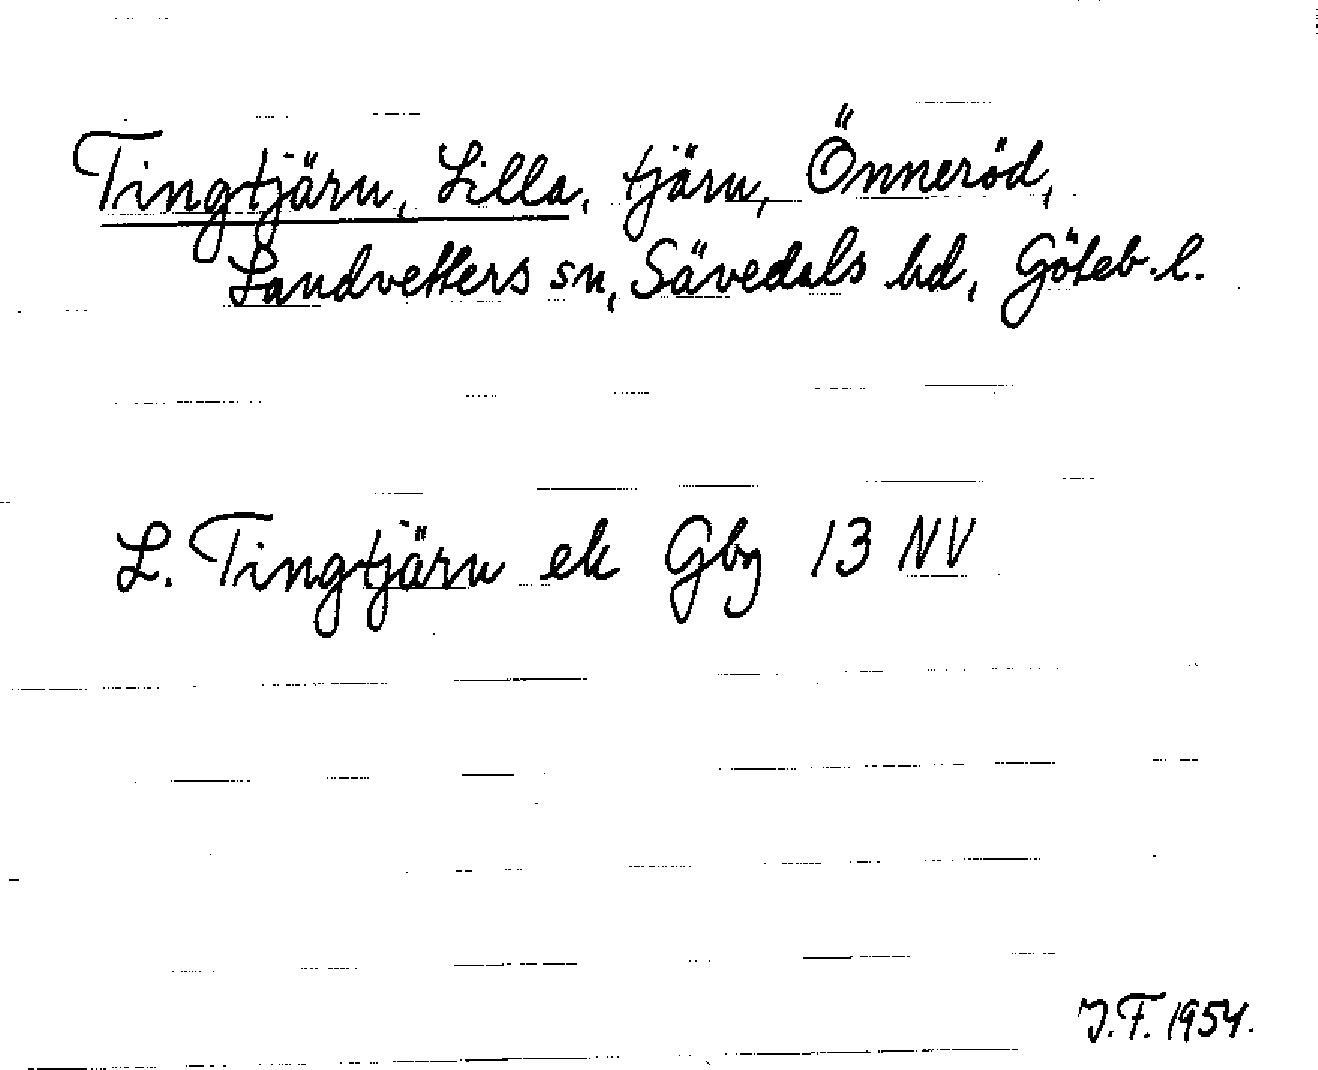 Tingtjärn, Lilla, tjärn, Önneröd,
Landvetters sn, Sävedals hd, Göteb. l.
L. Tingtjärn ek Gbg 13 NV
J.F. 1954.